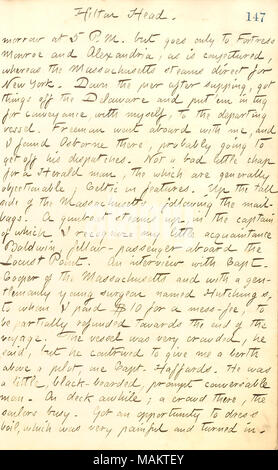 Hilton Head.
147
morrow at 5 P.M. but goes only to Fortress
Monroe and Alexandria, as is conjectured,
whereas the Massachusetts steams direct for
New York. Down the pier after supping, got
things off the Delaware and put em in tug
for conveyance with myself, to the departing
vessel. Freeman went aboard with me, and
I found Osborne there, probably going to
get off his dispatches. Not a bad little chap
for a Herald man, the which are generally
objectionable; Celtic in features. Up the tall
side of the Massachusetts, following the mail-
bags. A gunboat steams up, in the captain
of which I recognize my little acquaintance
Baldwin, fellow-passenger aboard the
Locust Point. An interview with Capt.
Cooper of the Massachusetts and with a gen-
tlemanly young surgeon named Hutchings,
to whom I paid $10 for a mess-fee, to
be partially refunded towards the end of the
voyage. The vessel was very crowded, he
said, but he contrived to give me a berth
above a pilot, one Capt. Haffards. He was
a little, black-bearded, prompt conversable
man. On deck awhile; a crowd there, the
sailors busy. Got an opportunity to dress
boil, which was very painful and turned in.
alamy
Image ID: MAKTEY
www.alamy.com